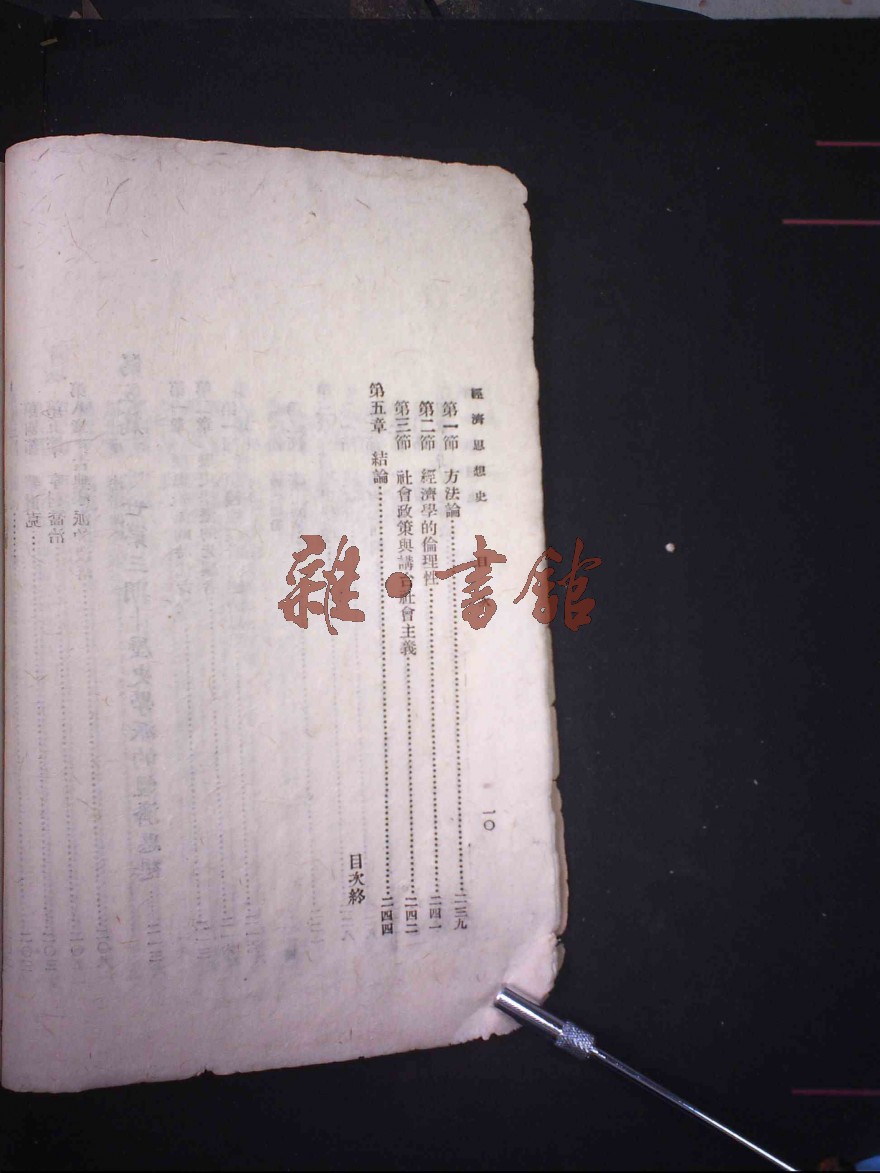 經濟思想史 目 一〇
第一節 方法論……二三九
第二節 經濟學的倫理性……二四一
第三節 社會政策與講台社會主義……二四二
第五章 結論……二四四
目次終
雜·書館